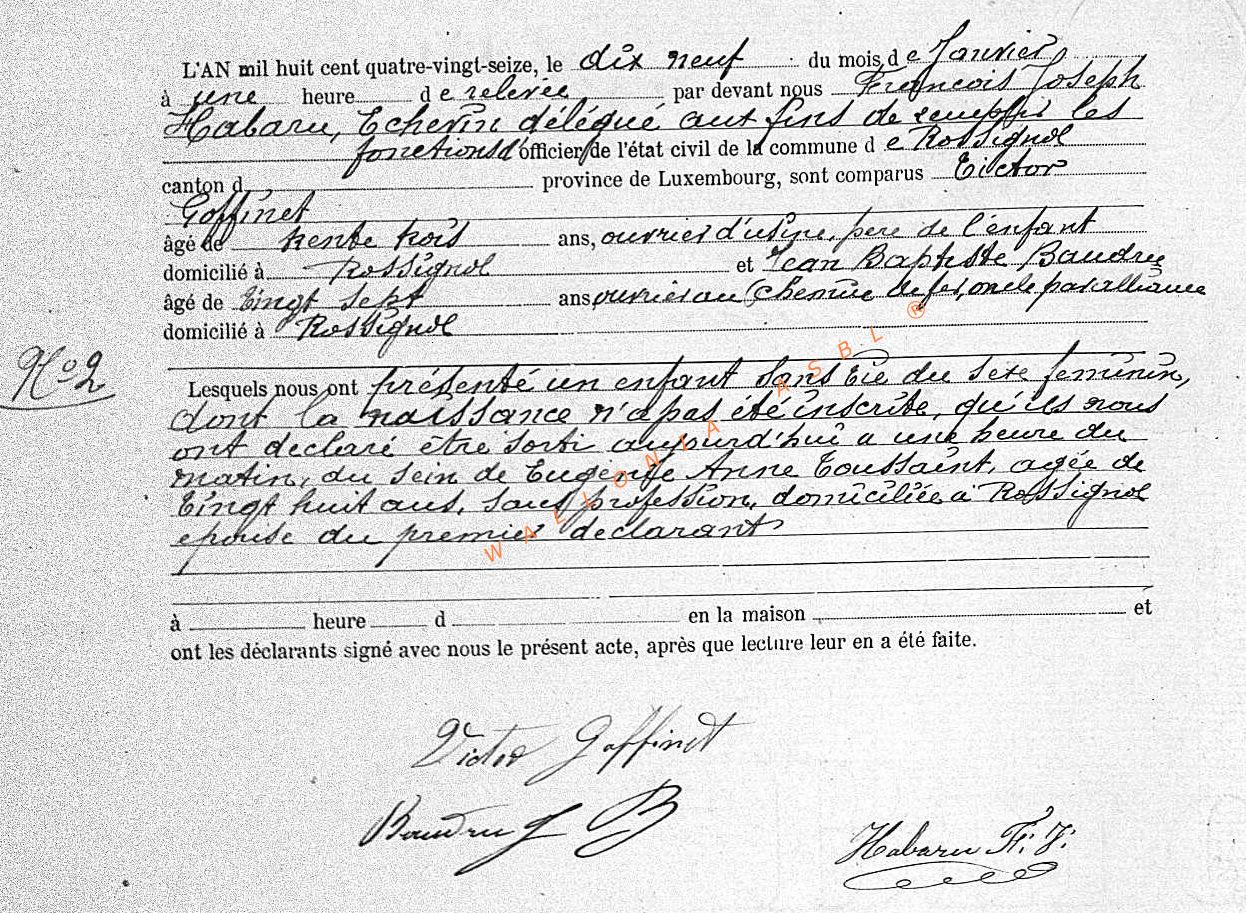 L'AN mil huit cent quatre-vingt-seize, le dix neuf du mois de Janvier
à une heure de relevée par devant nous François Joseph
Habaru, Echevin délégué aux fins de remplir les
fonctions d'officier de l'état civil de la commune de Rossignol
canton d province de Luxembourg, sont comparus Victor
Goffinet
âgé de trente trois ans, ouvrier d'usine, père de l'enfant
domicilié à Rossignol et Jean Baptiste Baudru
âgé de Vingt sept ans, ouvrier au chemin de fer, oncle par alliance
domicilié à Rossignol
No 2
Lesquels nous ont présenté un enfant sans vie du sexe feminin,
dont la naissance n'a pas été inscrite, qu'ils nous
ont declaré être sorti aujourd'hui a une heure du
matin, du sein de Eugenie Anne Toussaint, agée de
Vingt huit ans, sans profession, domiciliée à Rossignol
epouse du premier declarant
à heure d en la maison et
ont les déclarants signé avec nous le présent acte, après que lecture leur en a été faite.
Victor Goffinet
Baudru J B
Habaru F. J.
WALLONIA ASBL ®